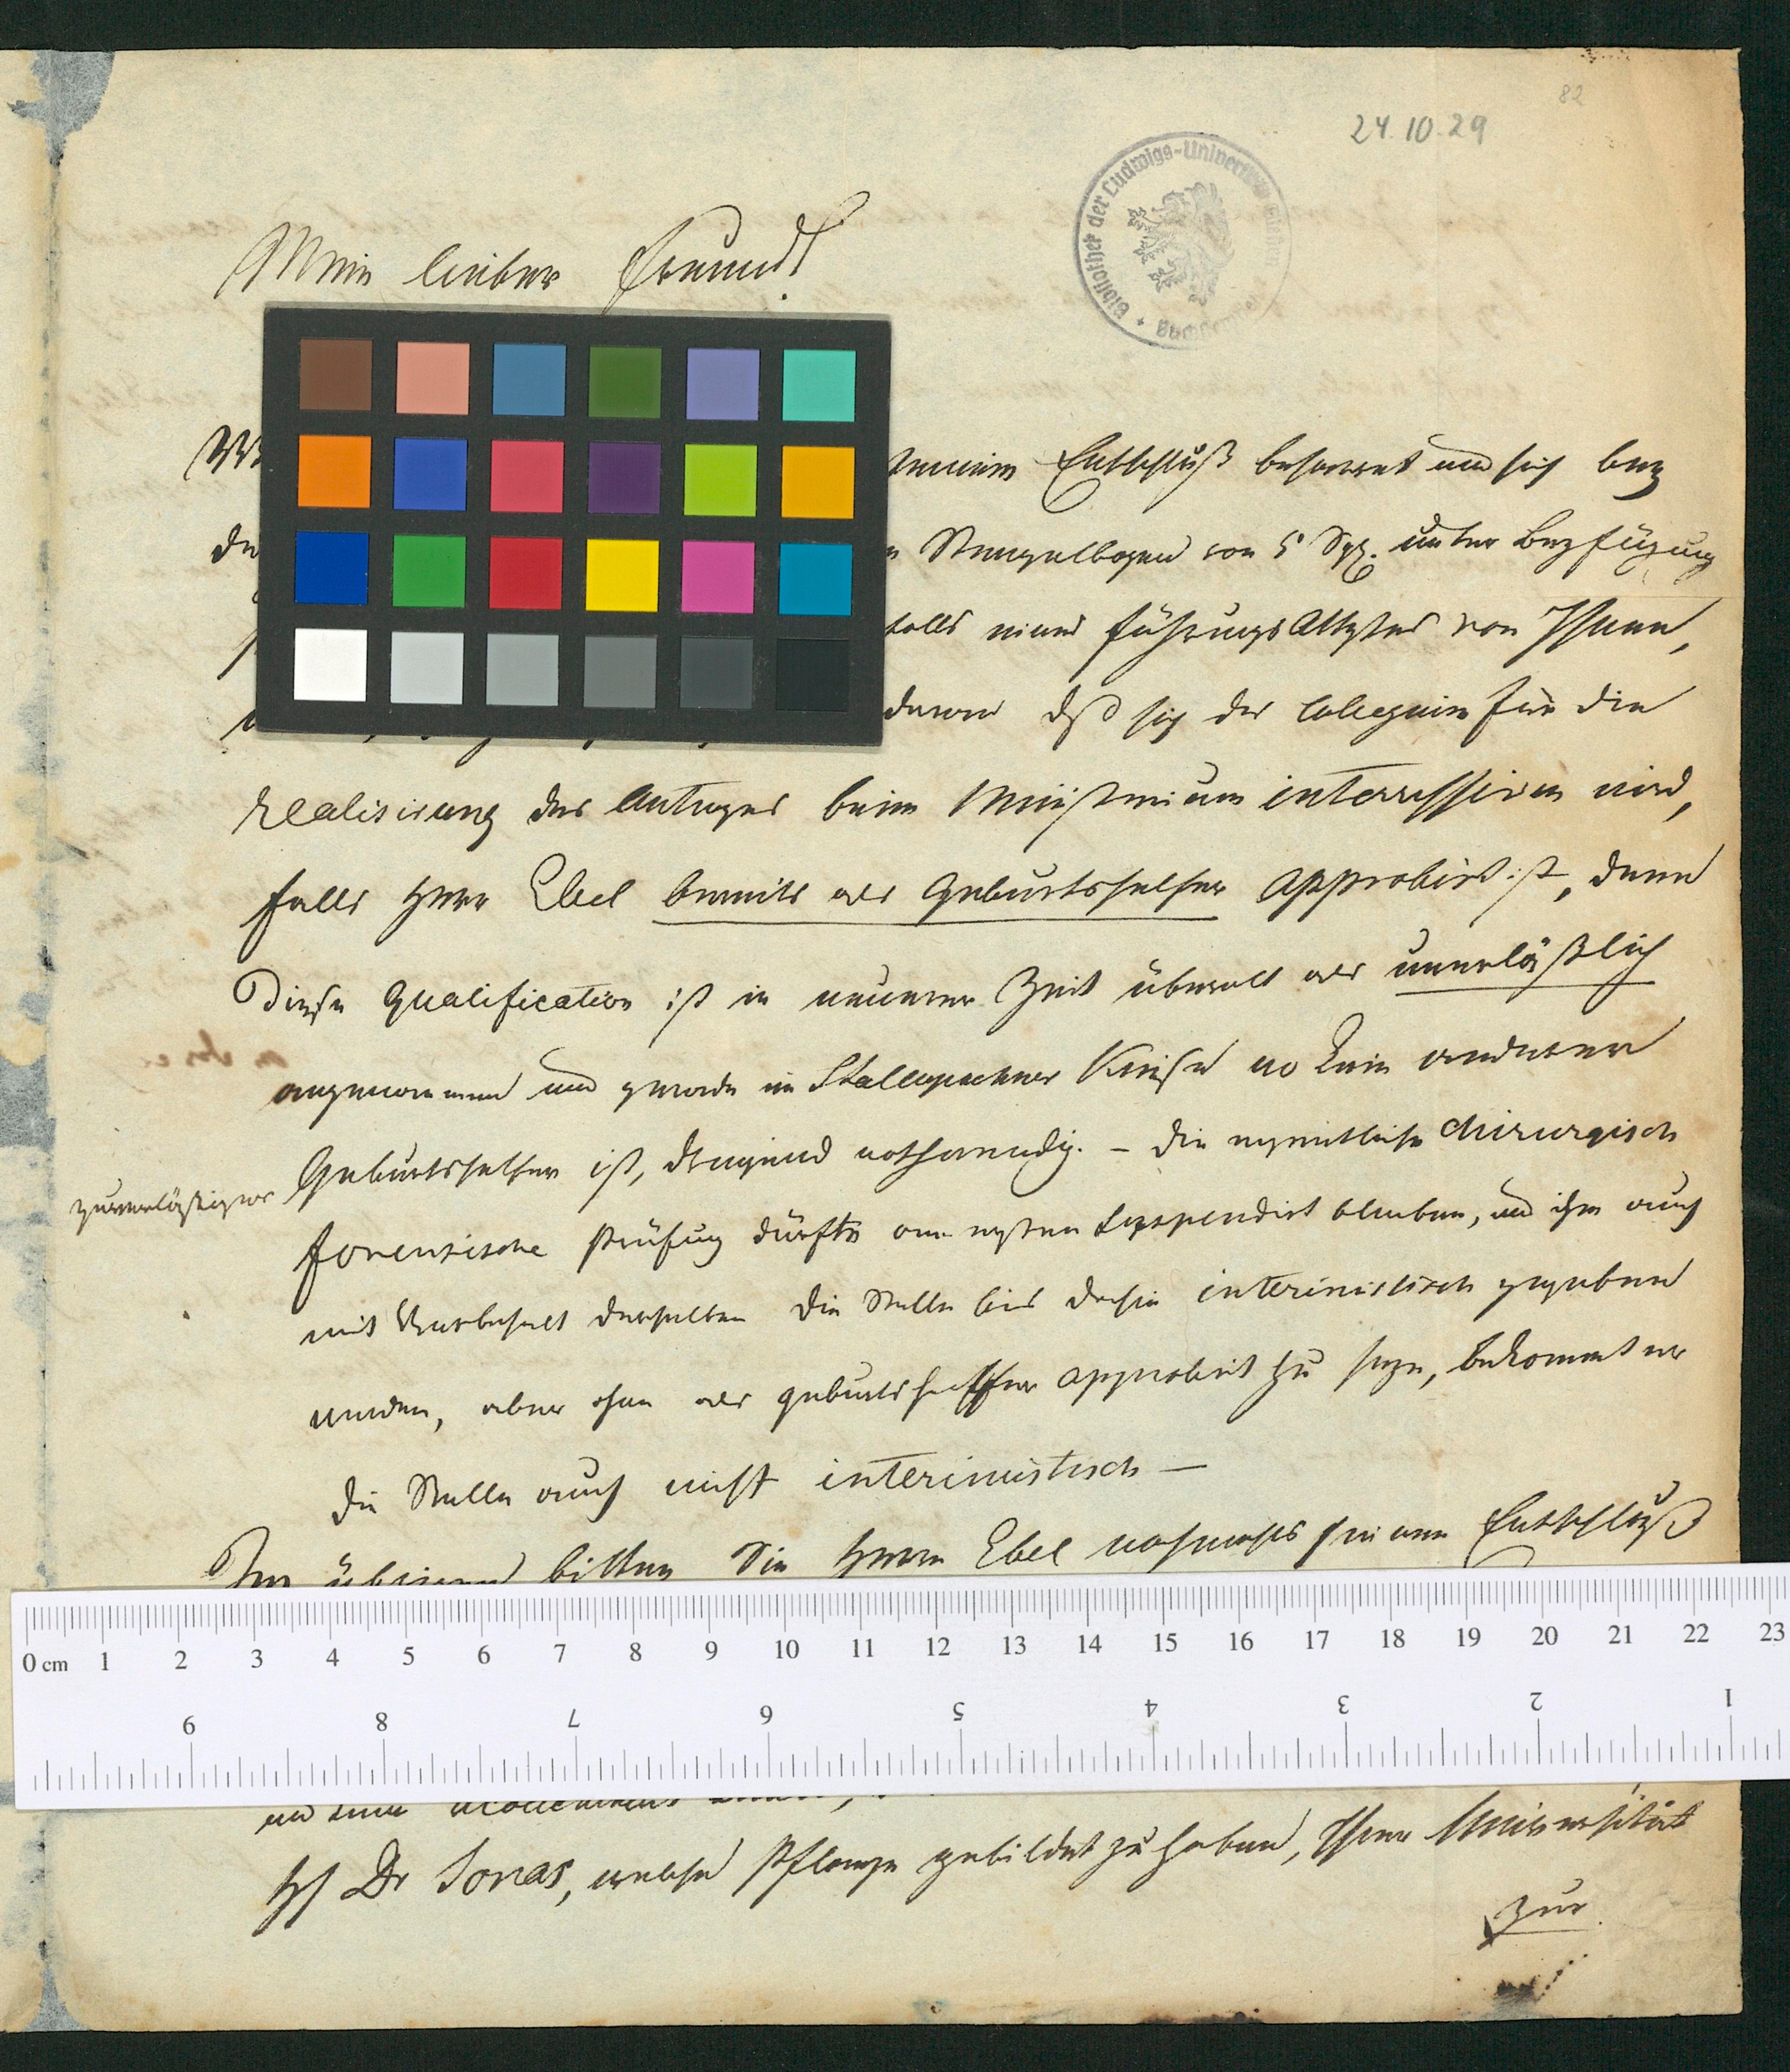 82
24.10.29
Bibliothek der Ludwigs-Universität Giessen
Mein lieber Freund!
Entschluß besorgt und sich bey
Stempelbogen von 5 Sgr. unter Beyfügung
falls eines Führungs Attestes von Ihnen,
davon daß sich das Collegium für die
Realisirung des Antrages beim Ministerium interressiren wird,
falls Herr Ebel bereits als Geburtshelfer approbirt ist, denn
Diese Qualification ist in neuerer Zeit überall als unerläßlich
angenommen und gerade im Kreise wo kein anderer
zuverläßiger
Geburtshelfer ist, dringend nothwendig. – Die eigentliche chirurgisch
forensische Prüfung dürfte am ersten suspendirt bleiben, und ihm auch
mit Vorbehalt derselben die Stelle bis dahin interimistisch gegeben
werden, aber ohne als Geburtshelfer approbirt zu seyn, bekommt er
die Stelle auch nicht interimistisch –
Im übrigen bitten Sie Herrn Ebel nochmals seinen Entschluß
H Dr Jonas, welche Pflanze gebildet zu haben, Ihrer Universität
zur
0 cm 1 2 3 4 5 6 7 8 9 10 11 12 13 14 15 16 17 18 19 20 21 22 23
9 8 7 6 5 4 3 2 1